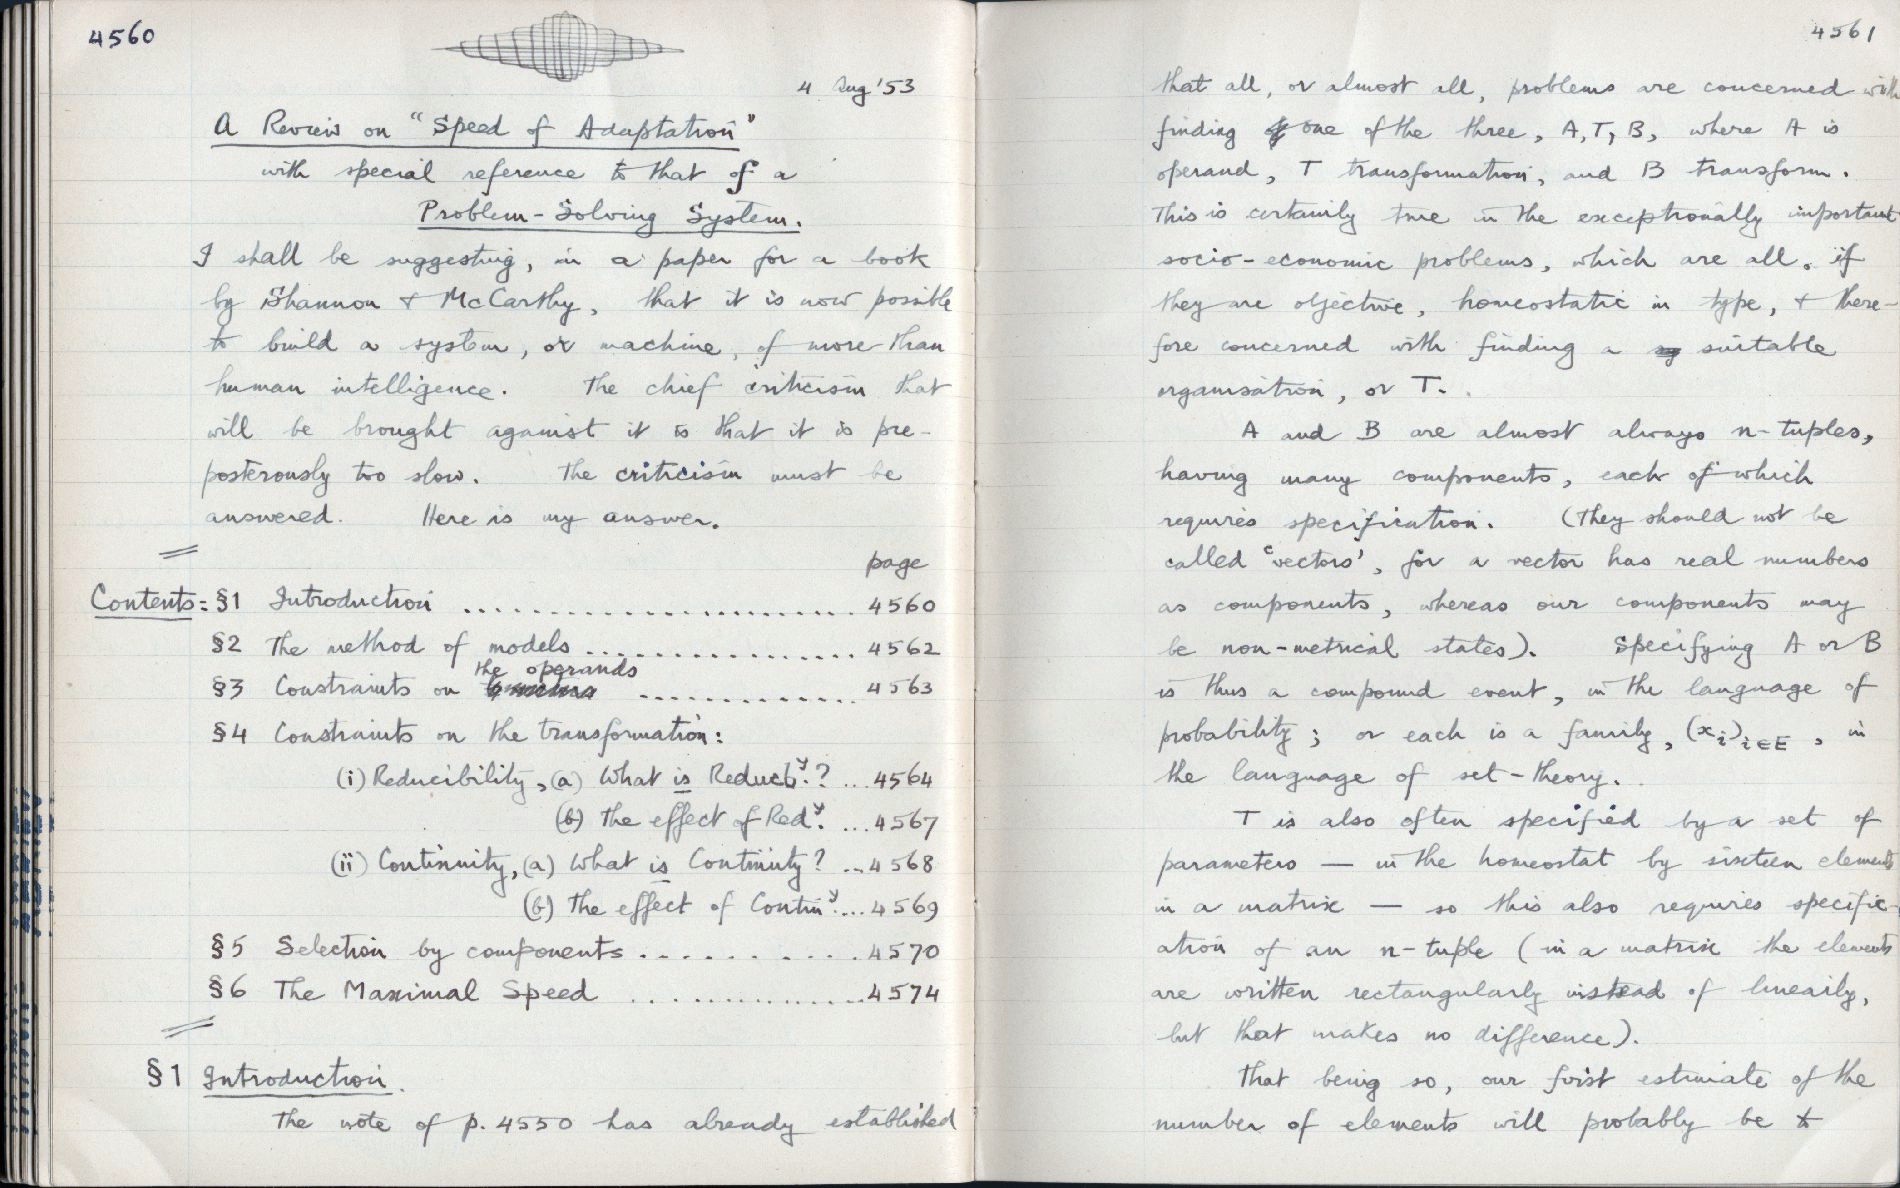 4560
4 Aug '53
A Review on "Speed of Adaptation"
with special reference to that of a
Problem-Solving System.
I shall be suggesting, in a paper for a book
by Shannon & McCarthy, that it is now possible
to build a system, or machine, of more than
human intelligence. The chief criticism that
will be brought against it is that it is pre-
posterously too slow. The criticism must be
answered. Here is my answer.
page
Contents: §1 Introduction ..................... 4560
§2 The method of models ................ 4562
the operands
§3 Constraints on ............. 4563
§4 Constraints on the transformation:
(i) Reducibility, (a) What is Reduc^y.? ... 4564
(b) The effect of Red^y. ... 4567
(ii) Continuity, (a) What is Continuity? ... 4568
(b) The effect of Contin^y.... 4569
§5 Selection by components........... 4570
§6 The Maximal Speed ............. 4574
§1 Introduction.
The note of p. 4550 has already established
4561
that all, or almost all, problems are concerned with
finding one of the three, A, T, B, where A is
operand, T transformation, and B transform.
This is certainly true in the exceptionally important
socio-economic problems, which are all, if
they are objective, homeostatic in type, & there-
fore concerned with finding a suitable
organisation, or T.
A and B are almost always n-tuples,
having many components, each of which
requires specification. (They should not be
called 'vectors', for a vector has real numbers
as components, whereas our components may
be non-metrical states). Specifying A or B
is thus a compound event, in the language of
probability; or each is a family, (xi)i∈E, in
the language of set-theory.
T is also often specified by a set of
parameters — in the homeostat by sixteen elements
in a matrix — so this also requires specific-
ation of an n-tuple (in a matrix the elements
are written rectangularly instead of linearly,
but that makes no difference).
That being so, our first estimate of the
number of elements will probably be to